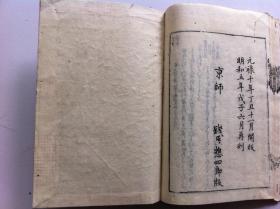 元祿十年丁丑十一月開版
明和五年戊子六月再刻
京師
錢屋惣四郎版